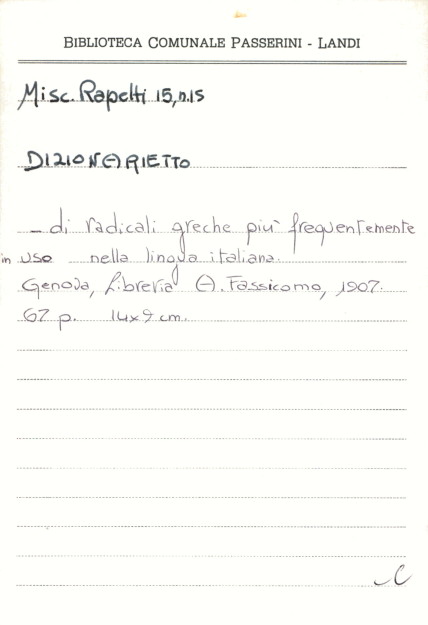 BIBLIOTECA COMUNALE PASSERINI - LANDI
Misc. Rapetti 15, n.15
DIZIONARIETTO
- di radicali greche più frequentemente
in uso nella lingua italiana.
Genova, Libreria A. Fassicomo, 1907.
67 p. 14x9 cm.